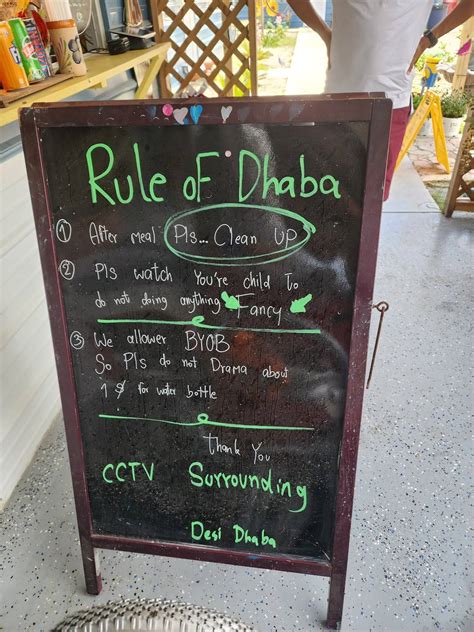 Rule of Dhaba
① After meal Pls... Clean UP
② Pls watch You're child To
do not doing anything Fancy
③ We allower BYOB
So Pls do not Drama about
1 $ for water bottle
Thank You
CCTV Surrounding
Desi Dhaba